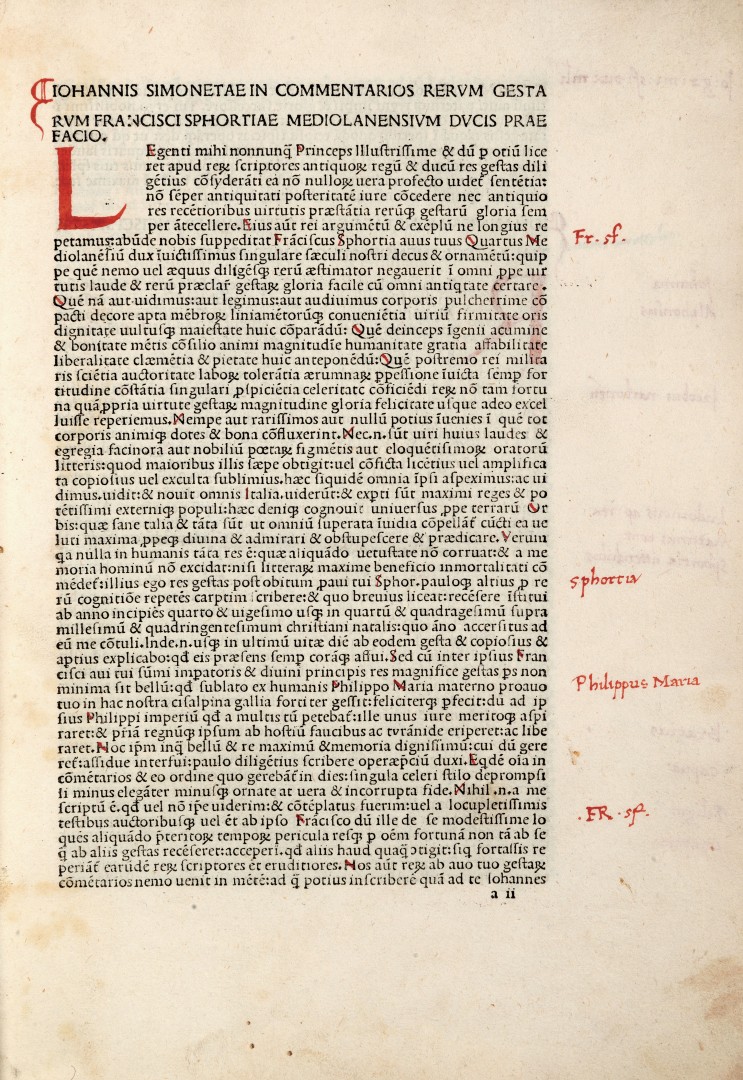 IOHANNIS SIMONETAE IN COMMENTARIOS RERVM GESTA
RVM FRANCISCI SPHORTIAE MEDIOLANENSIVM DVCIS PRAE
FACIO.
LEgenti mihi nonnunq̄ Princeps Illustrissime & dū p̱ otiū lice
ret apud reꝝ scriptores antiquoꝝ regū & ducū res gestas dili
gētius cōsyderāti ea nō nulloꝝ uera profecto uidet̄ sentētia:
nō sēper antiquitati posteritatē iure cōcedere nec antiquio
res recētioribus uirtutis præstātia rerūq; gestarū gloria sem
per ātecellere. Eius aūt rei argumētū & exēplū ne longius re
petamus: abūde nobis suppeditat Frāciscus Sphortia auus tuus Quartus Me
diolanēsiū dux īuictissimus singulare sæculi nostri decus & ornamētū: quip
pe quē nemo uel æquus diligēsq; rerū æstimator negauerit ī omni ꝓpe uir
tutis laude & rerū præclar̄ gestaꝝ gloria facile cū omni antiqtate certare.
Quē nā aut uidimus: aut legimus: aut audiuimus corporis pulcherrime cō
pacti decore apta mēbroꝝ liniamētorūq; conueniētia uiriū firmitate oris
dignitate uultusq; maiestate huic cōparādū: Quē deinceps īgenii acumine
& bonitate mētis cōsilio animi magnitudīe humanitate gratia affabilitate
liberalitate clæmētia & pietate huic anteponēdū: Quē postremo rei milita
ris sciētia auctoritate laboꝝ tolerātia ærumnaꝝ p̱pessione īuicta semp̱ for
titudine cōstātia singulari p̱spiciētia celeritate cōficiēdi reꝝ nō tam fortu
na quā ꝓpria uirtute gestaꝝ magnitudine gloria felicitate usque adeo excel
luisse reperiemus. Nempe aut rarissimos aut nullū potius īuenies ī quē tot
corporis animiq; dotes & bona cōfluxerint. Nec.n. sūt uiri huius laudes &
egregia facinora aut nobiliū poetaꝝ figmētis aut eloquētissimoꝝ oratorū
litteris: quod maioribus illis sæpe obtigit: uel cōficta licētius uel amplifica
ta copiosius uel exculta sublimius. hæc siquidē omnia ipsi aspeximus: ac ui
dimus. uidit: & nouit omnis Italia. uiderūt: & exp̱ti sūt maximi reges & po
tētissimi externiq; populi: hæc deniq; cognouit uniuersus ꝓpe terrarū Or
bis: quæ sane talia & tāta sūt ut omniū superata īuidia cōpellāt̄ cūcti ea ue
luti maxima ꝓpeq; diuina & admirari & obstupescere & prædicare. Verum
q̄a nulla in humanis tāta res ē: quæ aliquādo uetustate nō corruat: & a me
moria hominū nō excidat: nisi litteraꝝ maxime beneficio inmortalitati cō
mēdet̄: illius ego res gestas post obitum ꝓaui tui Sphor. pauloq; altius p̱ re
rū cognitiōe repetēs carptim scribere: & quo breuius liceat: recēsere īstitui
ab anno incipiēs quarto & uigesimo usq; in quartū & quadragesimū supra
millesimū & quadringentesimum christiani natalis: quo āno accersitus ad
eū me cōtuli. Inde.n. usq; in ultimū uitæ diē ab eodem gesta & copiosius &
aptius explicabo: qđ eis præsens semp̱ corāq; affui. Sed cū inter ipsius Fran
cisci aui tui sūmi imparatoris & diuini principis res magnifice gestas ps non
minima sit bellū: qđ sublato ex humanis Philippo Maria materno proauo
tuo in hac nostra cisalpina gallia fortiter gessit: feliciterq; p̱fecit: dū ad ip
sius Philippi imperiū qđ a multis tū petebat̄: ille unus iure meritoq; aspi
raret: & priā regnūq; ipsum ab hostiū faucibus ac tyrānide eriperet: ac libe
raret. Hoc ip̄m inq̄ bellū & re maximū & memoria dignissimū: cui dū gere
ret̄: assidue interfui: paulo diligētius scribere operæp̄ciū duxi. Eqdē oīa in
cōmētarios & eo ordine quo gerebāt̄ in dies: singula celeri stilo deprompsi
si minus elegāter minusq; ornate at uera & incorrupta fide. Nihil.n. a me
scriptū ē. qđ uel nō ip̄e uiderim: & cōtēplatus fuerim: uel a locupletissimis
testibus auctoribusq; uel ēt ab ipso Frācisco dū ille de se modestissime lo
quēs aliquādo p̄teritoꝝ tempoꝝ pericula resq; p̱ oēm fortunā non tā ab se
q̄ ab aliis gestas recēseret: acceperī. qđ aliis haud quaq̄ ↄtigit: siq; fortassis re
periāt̄ earūdē reꝝ scriptores et eruditiores. Nos aūt reꝝ ab auo tuo gestaꝝ
cōmētarios nemo uenit in mētē: ad q̄ potius inscriberē quā ad te Iohannes
a ii
Fr. sf.
Sphortia
Philippus Maria
. FR . sf .